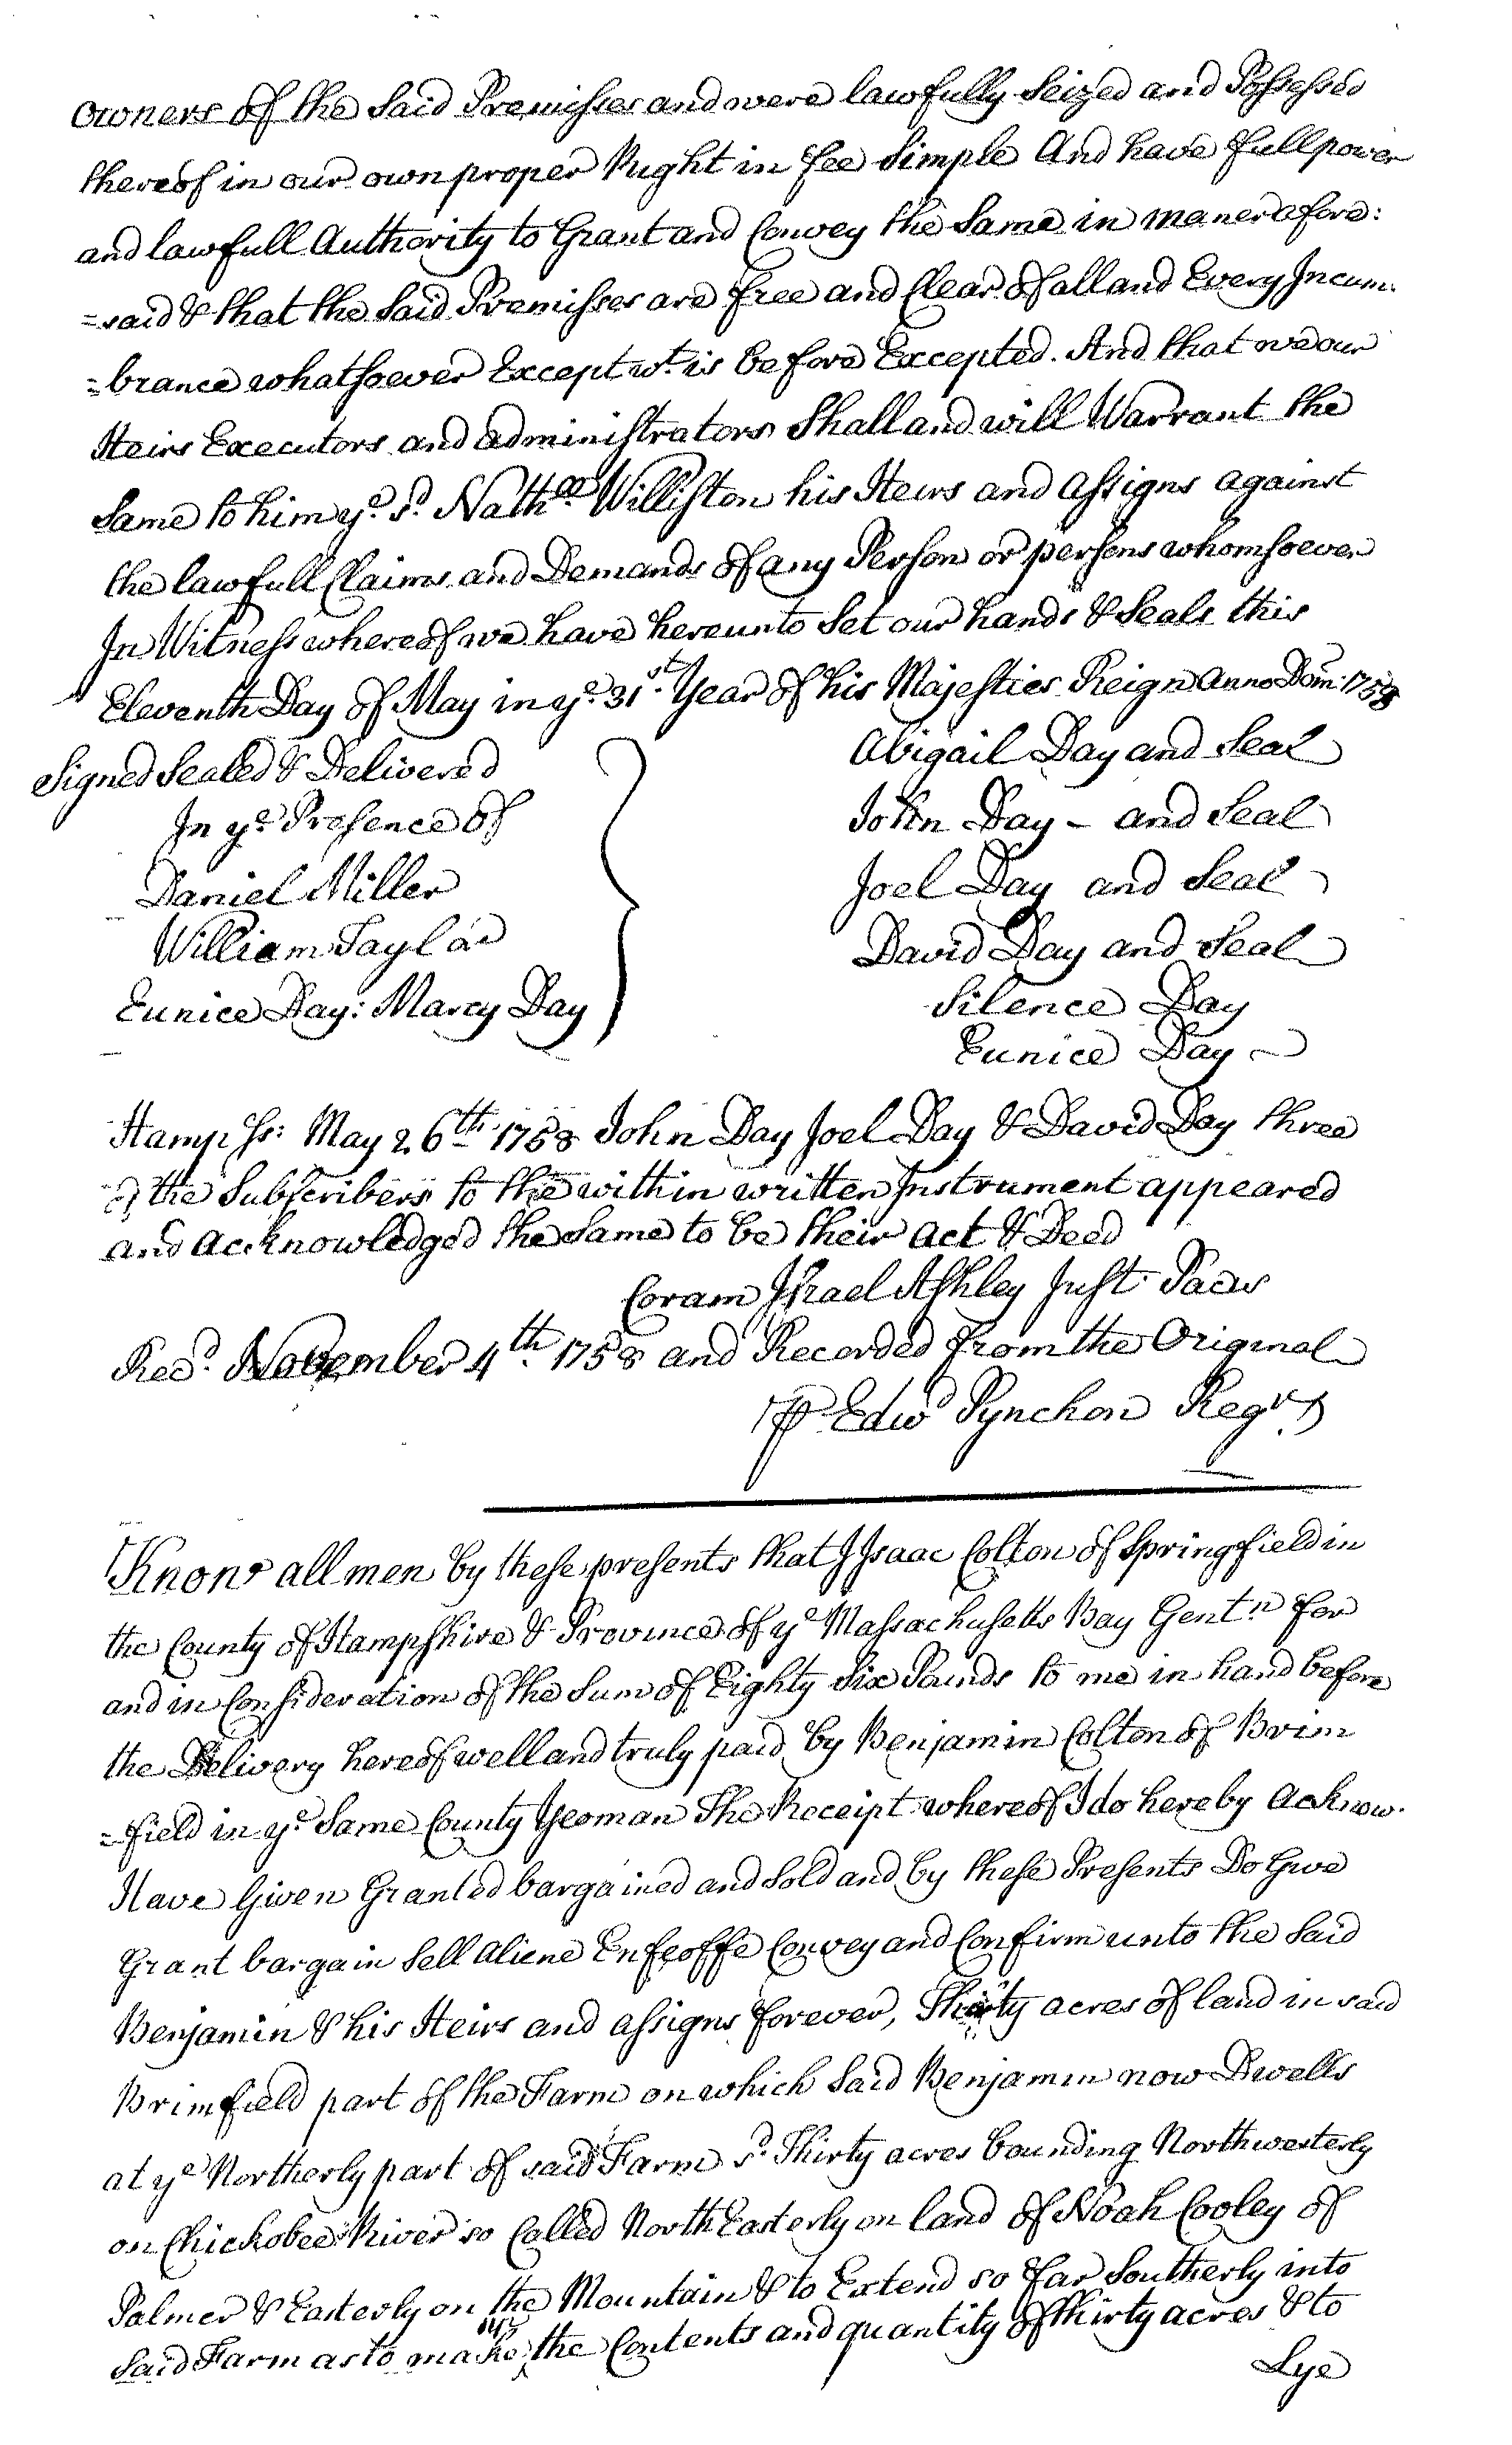 owners of the Said Premisses and were lawfully Seized and Possessed
thereof in our own proper Right in fee Simple And have full power
and lawfull Authority to Grant and Convey the Same in maner afore:
=said & that the Said Premisses are free and Clear of all and Every Incum:
=brance whatsoever Except wt. is before Excepted. And that we our
Heirs Executors and administrators Shall and will Warrant the
Same to him ye. sd. Nathll. Williston his Heirs and assigns against
the lawfull Claims and Demands of any Person or persons whomsoever
In Witness whereof we have hereunto Set our hands & Seals this
Eleventh Day of May in ye. 31st. Year of his Majesties Reign Anno Dom: 1758
Signed Sealed & Delivered
In ye Presence of
Daniel Miller
William Taylor
Eunice Day: Marcy Day
Abigail Day and Seal
John Day - and Seal
Joel Day and Seal
David Day and Seal
Silence Day
Eunice Day
Hamp Ss: May 26th. 1758 John Day Joel Day & David Day three
of the Subscribers to the within written Instrument appeared
and Acknowledged the Same to be their act & Deed
Coram Israel Ashley Just Pacis
Recd. November 4th. 1758 and Recorded from the Original
P Edwd Pynchon Regr
Know all men by these presents that I Isaac Colton of Springfield in
the County of Hampshire & Province of ye Massachusetts Bay Gentn for
and in Consideration of the Sum of Eighty Six Pounds to me in hand before
the Delivery hereof well and truly paid by Benjamin Colton of Brim
=field in ye. Same County Yeoman The Receipt whereof I do hereby acknow.
Have Given Granted bargained and Sold and by these Presents Do Give
Grant bargain Sell aliene Enfeoffe Convey and Confirm unto the Said
Benjamin & his Heirs and assigns forever, Thirty acres of land in said
Brimfield part of the Farm on which Said Benjamin now Dwells
at ye Northerly part of said Farm sd. Thirty acres bounding Northwesterly
on Chickobee River so Called North Easterly on land of Noah Cooley of
Palmer & Easterly on the Mountain & to Extend so far Southerly into
Said Farm as to make up the Contents and quantity of thirty acres & to
Lye